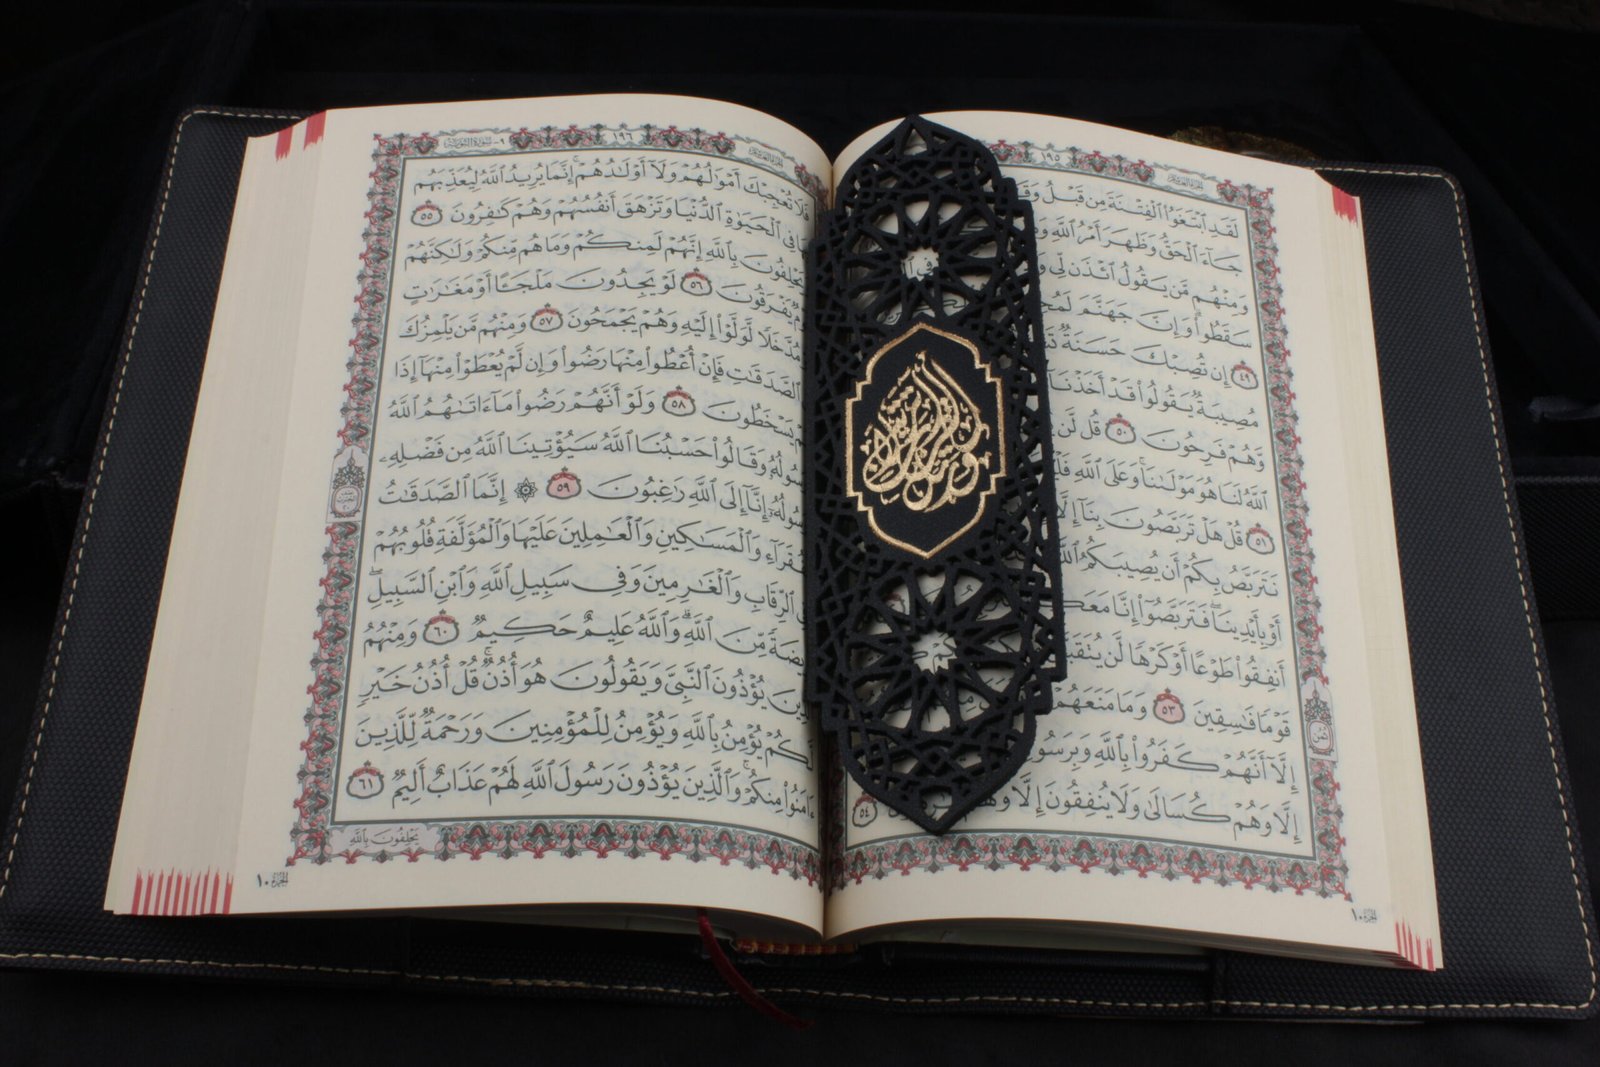 الجزء العاشر
١٩٥
لَقَدِ ٱبْتَغَوُا۟ ٱلْفِتْنَةَ مِن قَبْلُ وَقَ
جَآءَ ٱلْحَقُّ وَظَهَرَ أَمْرُ ٱللَّهِ وَهُ
وَمِنْهُم مَّن يَقُولُ ٱئْذَن لِّى وَ فِى ٱلْ
سَقَطُوا۟ ۗ وَإِنَّ جَهَنَّمَ لَمُحِ
٤٩ إِن تُصِبْكَ حَسَنَةٌ تَ
مُصِيبَةٌ يَقُولُوا۟ قَدْ أَخَذْنَآ
وَّهُمْ فَرِحُونَ ٥٠ قُل لَّن يُ
ٱللَّهُ لَنَا هُوَ مَوْلَىٰنَا ۚ وَعَلَى ٱللَّهِ فَلْ
٥١ قُلْ هَلْ تَرَبَّصُونَ بِنَآ إِلَّآ
نَتَرَبَّصُ بِكُمْ أَن يُصِيبَكُمُ ٱللَّهُ
أَوْ بِأَيْدِينَا ۖ فَتَرَبَّصُوٓا۟ إِنَّا مَعَكُ
أَنفِقُوا۟ طَوْعًا أَوْ كَرْهًا لَّن يُتَقَبَّلَ
قَوْمًا فَـٰسِقِينَ ٥٣ وَمَا مَنَعَهُمْ
إِلَّآ أَنَّهُمْ كَفَرُوا۟ بِٱللَّهِ وَبِرَسُو
إِلَّا وَهُمْ كُسَالَىٰ وَلَا يُنفِقُونَ إِلَّا وَهُمْ كَـٰرِهُونَ ٥٤
ثمن
الجزء ١٠
الجزء العاشر
١٩٦
٩ - سورة التوبة
فَلَا تُعْجِبْكَ أَمْوَٰلُهُمْ وَلَآ أَوْلَـٰدُهُمْ ۚ إِنَّمَا يُرِيدُ ٱللَّهُ لِيُعَذِّبَهُم
بِهَا فِى ٱلْحَيَوٰةِ ٱلدُّنْيَا وَتَزْهَقَ أَنفُسُهُمْ وَهُمْ كَـٰفِرُونَ ٥٥
وَيَحْلِفُونَ بِٱللَّهِ إِنَّهُمْ لَمِنكُمْ وَمَا هُم مِّنكُمْ وَلَـٰكِنَّهُمْ
قَوْمٌ يَفْرَقُونَ ٥٦ لَوْ يَجِدُونَ مَلْجَـًٔا أَوْ مَغَـٰرَٰتٍ
أَوْ مُدَّخَلًا لَّوَلَّوْا۟ إِلَيْهِ وَهُمْ يَجْمَحُونَ ٥٧ وَمِنْهُم مَّن يَلْمِزُكَ
فِى ٱلصَّدَقَـٰتِ فَإِنْ أُعْطُوا۟ مِنْهَا رَضُوا۟ وَإِن لَّمْ يُعْطَوْا۟ مِنْهَآ إِذَا
هُمْ يَسْخَطُونَ ٥٨ وَلَوْ أَنَّهُمْ رَضُوا۟ مَآ ءَاتَىٰهُمُ ٱللَّهُ
وَرَسُولُهُۥ وَقَالُوا۟ حَسْبُنَا ٱللَّهُ سَيُؤْتِينَا ٱللَّهُ مِن فَضْلِهِۦ
وَرَسُولُهُۥٓ إِنَّآ إِلَى ٱللَّهِ رَٰغِبُونَ ٥٩ ۞ إِنَّمَا ٱلصَّدَقَـٰتُ
لِلْفُقَرَآءِ وَٱلْمَسَـٰكِينِ وَٱلْعَـٰمِلِينَ عَلَيْهَا وَٱلْمُؤَلَّفَةِ قُلُوبُهُمْ
وَفِى ٱلرِّقَابِ وَٱلْغَـٰرِمِينَ وَفِى سَبِيلِ ٱللَّهِ وَٱبْنِ ٱلسَّبِيلِ ۖ
فَرِيضَةً مِّنَ ٱللَّهِ ۗ وَٱللَّهُ عَلِيمٌ حَكِيمٌ ٦٠ وَمِنْهُمُ
ٱلَّذِينَ يُؤْذُونَ ٱلنَّبِىَّ وَيَقُولُونَ هُوَ أُذُنٌ ۚ قُلْ أُذُنُ خَيْرٍ
لَّكُمْ يُؤْمِنُ بِٱللَّهِ وَيُؤْمِنُ لِلْمُؤْمِنِينَ وَرَحْمَةٌ لِّلَّذِينَ
ءَامَنُوا۟ مِنكُمْ ۚ وَٱلَّذِينَ يُؤْذُونَ رَسُولَ ٱللَّهِ لَهُمْ عَذَابٌ أَلِيمٌ ٦١
يَحْلِفُونَ بِٱللَّهِ
الجزء ١٠